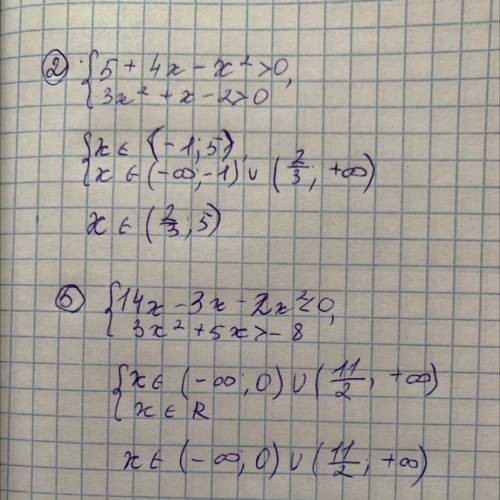 2) { 5 + 4x - x² > 0,
3x² + x - 2 > 0
{ x ∈ (-1; 5),
x ∈ (-∞; -1) ∪ (2/3; +∞)
x ∈ (2/3; 5)
б) { 14x - 3x - 2x² < 0,
3x² + 5x > -8
{ x ∈ (-∞; 0) ∪ (11/2; +∞)
x ∈ R
x ∈ (-∞; 0) ∪ (11/2; +∞)